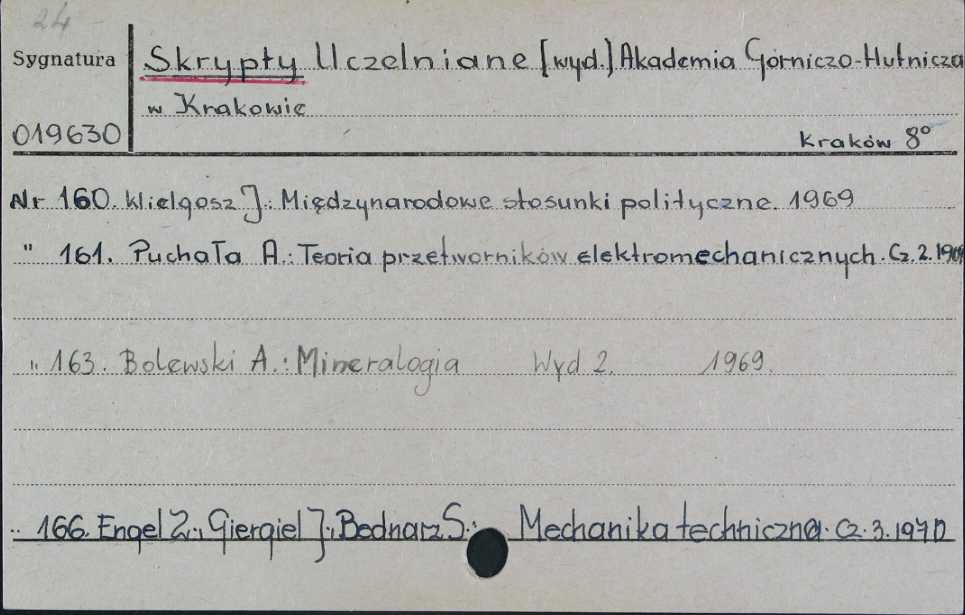 24
Sygnatura
Skrypty Uczelniane [wyd.] Akademia Górniczo-Hutnicza
w Krakowie
019630
Kraków 8°
Nr 160. Wielgosz J.: Międzynarodowe stosunki polityczne. 1969
" 161. Puchała A.: Teoria przetworników elektromechanicznych. Cz. 2. 1969
" 163. Bolewski A.: Mineralogia Wyd 2. 1969.
" 166. Engel Z., Giergiel J., Bednarz S.: Mechanika techniczna. Cz. 3. 1970